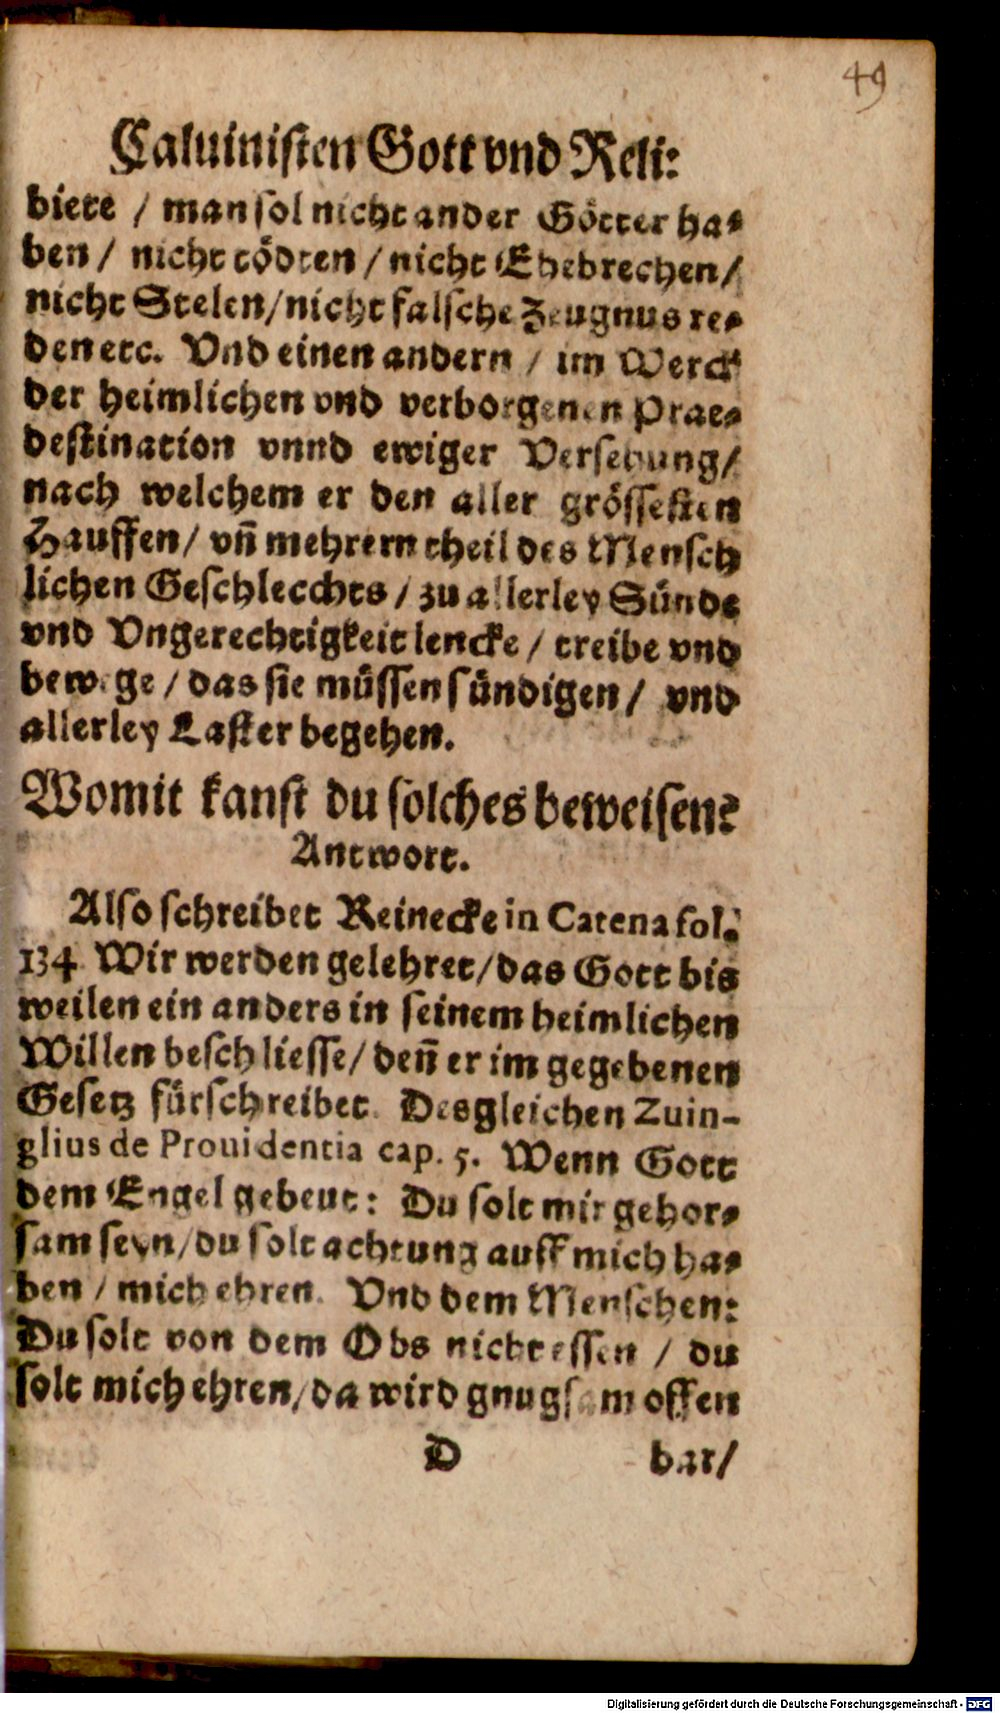 49
Caluinisten Gott vnd Reli:
biete / man sol nicht ander Götter ha-
ben / nicht tödten / nicht Ehebrechen /
nicht Stelen / nicht falsche Zeugnus re-
den etc. Vnd einen andern / im Werck
der heimlichen vnd verborgenen Prae-
destination vnnd ewiger Versehung /
nach welchem er den aller grössesten
Hauffen / vn̄ mehrern theil des Mensch
lichen Geschlecchts / zu allerley Sünde
vnd Vngerechtigkeit lencke / treibe vnd
bewege / das sie müssen sündigen / vnd
allerley Laster begehen.
Womit kanst du solches beweisen?
Antwort.
Also schreibet Reinecke in Catena fol.
134 Wir werden gelehret / das Gott bis
weilen ein anders in seinem heimlichen
Willen beschliesse / den̄ er im gegebenen
Gesetz fürschreibet. Desgleichen Zuin-
glius de Prouidentia cap. 5. Wenn Gott
dem Engel gebeut: Du solt mir gehor-
sam seyn / du solt achtung auff mich ha-
ben / mich ehren. Vnd dem Menschen:
Du solt von dem Obs nicht essen / du
solt mich ehren / da wird gnugsam offen
D bar /
Digitalisierung gefördert durch die Deutsche Forschungsgemeinschaft - DFG